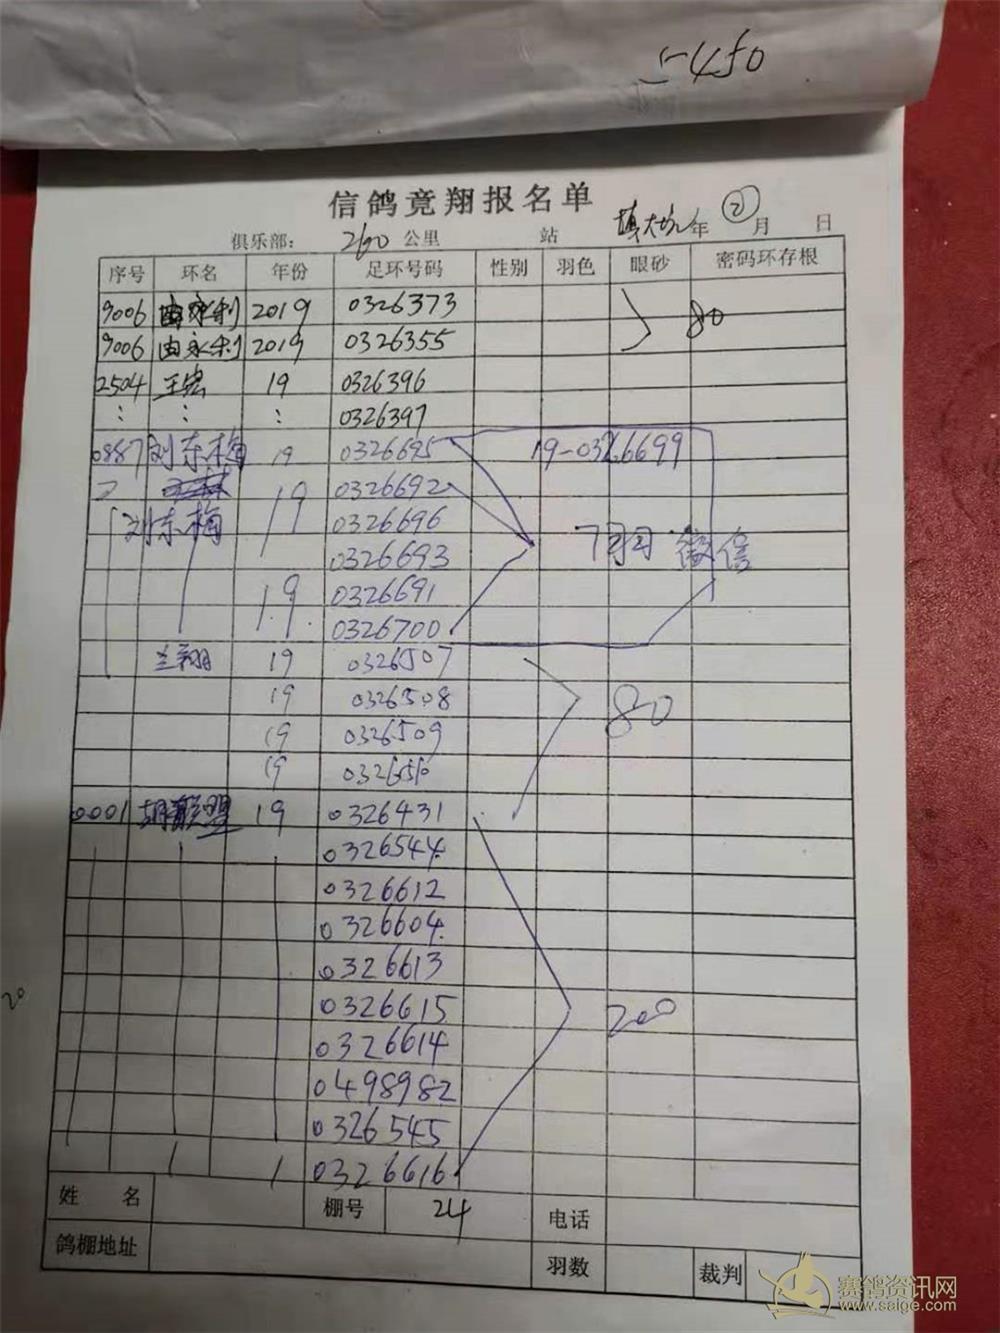 5-450
信鸽竟翔报名单
俱乐部: 260 公里 站 年 ② 月 日
序号 环名 年份 足环号码 性别 羽色 眼砂 密码环存根
9006 由永利 2019 0326373
9006 由永利 2019 0326355 80
2504 王宏 19 0326396
: : : 0326397
0887 刘东梅 19 0326695 19-0326699
0326692
刘东梅 19 0326696
0326693 微信
19 0326691
0326700
兰翔 19 0326507
19 0326508 80
19 0326509
19 0326510
0001 胡联盟 19 0326431
0326544
0326612
0326604
0326613
20 0326615 200
0326614
0498982
0326545
0326616
姓名 棚号 24 电话
鸽棚地址 羽数 裁判
赛鸽资讯网
www.saige.com